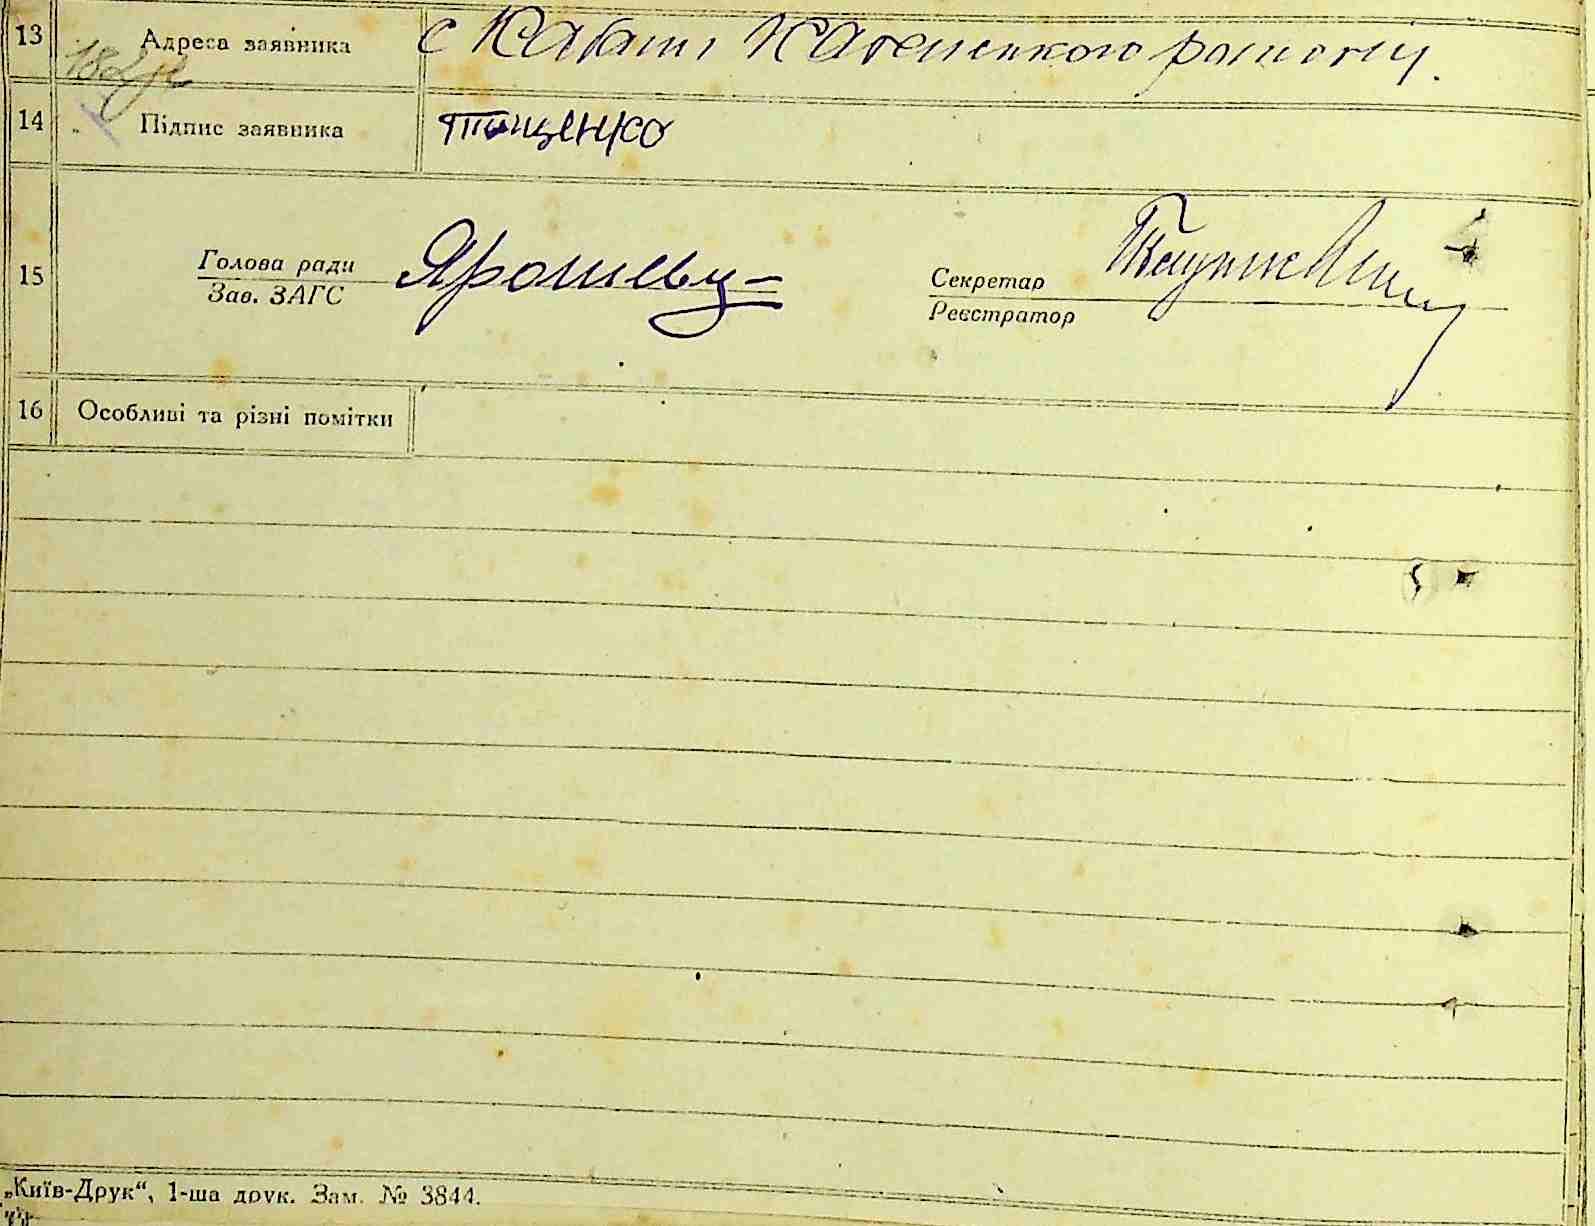 13 Адреса заявника с Кабані району.
14 Підпис заявника Тищенко
Голова ради Ярошеву
15 Зав. ЗАГС
Секретар
Реєстратор
16 Особливі та різні помітки
„Київ-Друк“, 1-ша друк. Зам. № 3844.